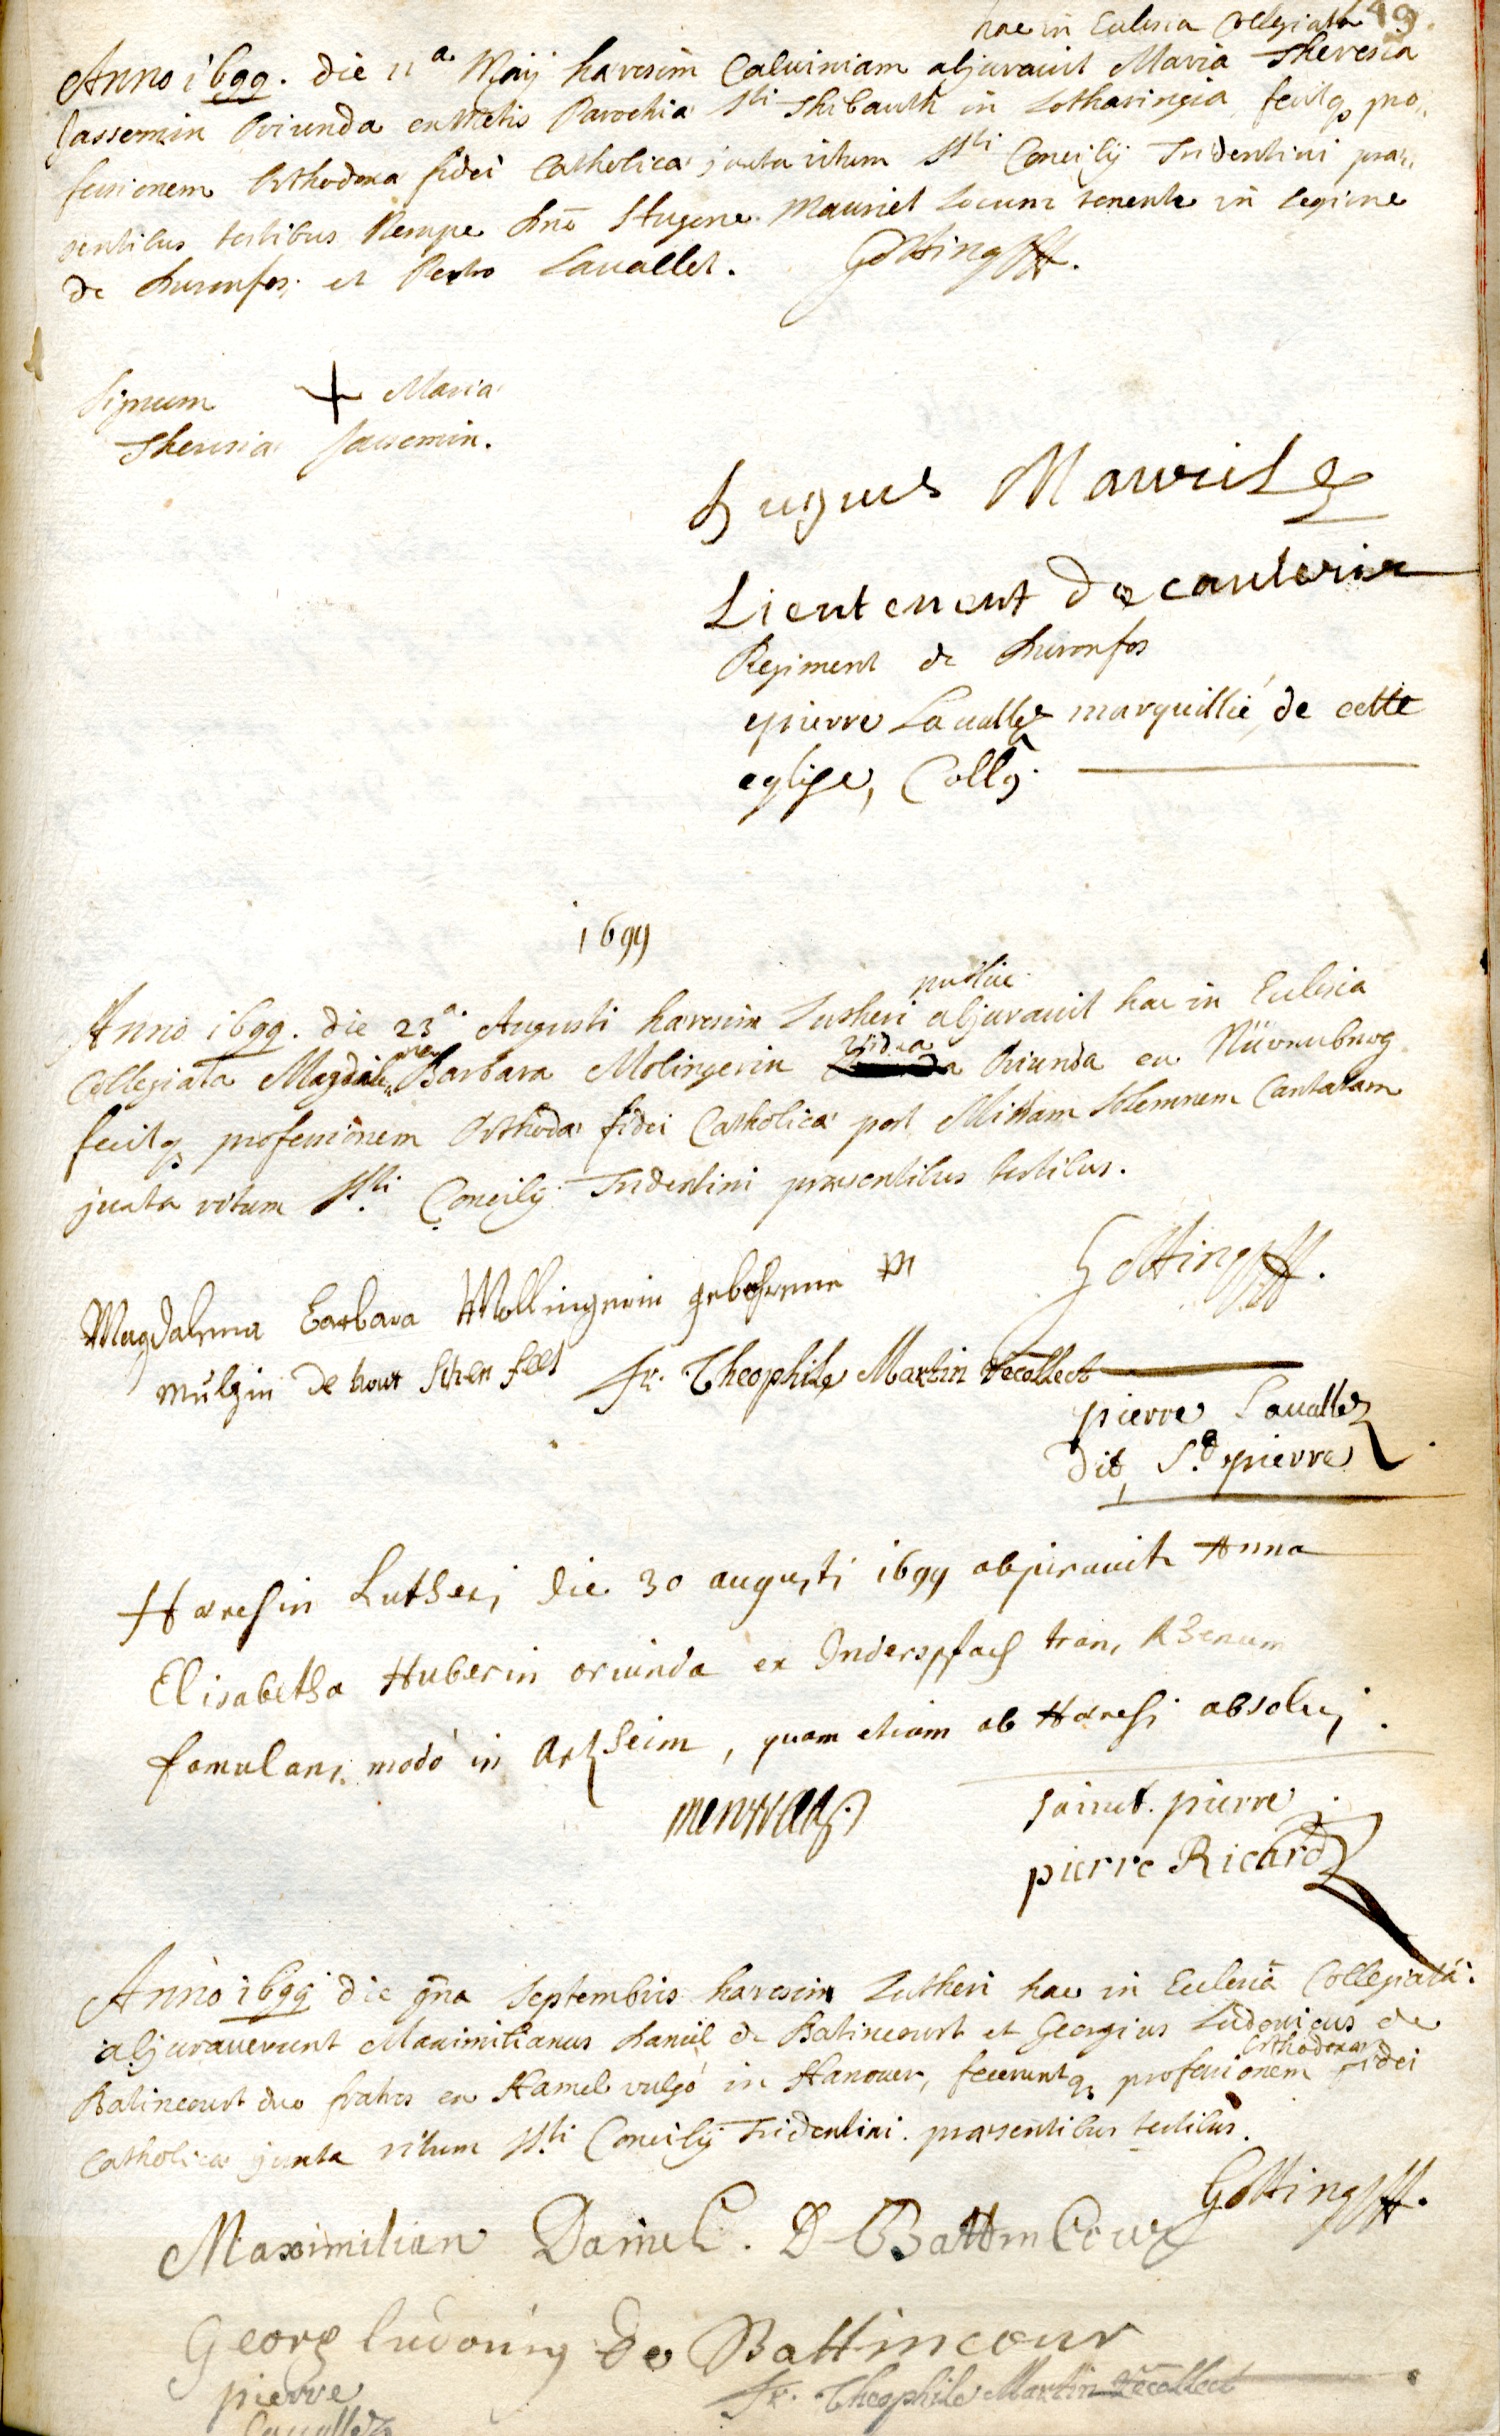 49.
hac in Eclesia Collegiata
Anno 1699. die 11a Maij haeresim Calviniam abjuravit Maria Theresia
Jassemin Oriunda ex Metis Parochia Sti Thibault in Lotharingia, fecitq pro-
fessionem Orthodoxa fidei Catholica juxta ritum SSti Concilij Tridentini prae-
sentibus testibus Nempe dno Hugone Mauriet Locum tenente in legione
de Duronfos: et Petro Lavallet. Gotting
Signum + Maria
Theresia Jassemin.
hugues Mauriet
Lieutenent de caulerie
Regiment de Duronfos
pierre Lavallez marguillié, de cette
eglise, Collg.
1699
publice
Anno 1699. die 23a. Augusti haeresim Lutheri abjuravit hac in Eclesia
Collegiata Magdalena Barbara Molingerin vidua Oriunda ex Nürnuburg
fecitq professionem Orthodoa fidei Catholica post Missam Solemnem Cantatam
juxta ritum SSti Concilij Tridentini praesentibus testibus.
Gotting
Magdalena Barbara Mollingerin gebohrene
fr. Theophile Martin recollect
pierre Lavallez
dit, St pierre
Haeresin Lutheri die 30 augusti 1699 abjiravit Anna
Elisabetha Huberin oriunda ex Inderspfach trans Rhenum
famulans modo in Artzheim, quam etiam ab Haeresi absolvi.
sainct. pierre
pierre Ricard
Anno 1699 die 9na Septembris haeresim Lutheri hac in Eclesiâ Collegiatâ
abjuraverunt Maximilianus Daniel de Batincourt et Georgius Ludovicus de
Orthodoxa
Batincourt duo fratres ex Hamel vulgo in Hanover, feceruntq professionem fidei
Catholica juxta ritum SSti Concilij Tridentini praesentibus testibus.
Gotting
Maximilian Daniel. D Battincour
Georg ludouig de Battincour
pierre
Lavallez
fr. Theophile Martin recollect